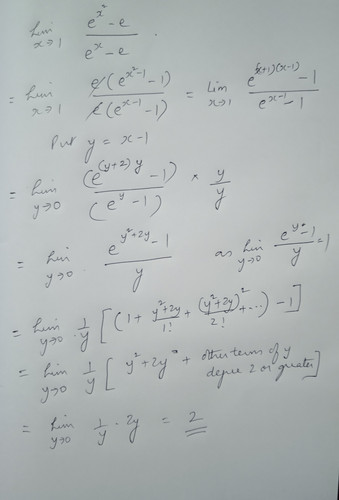 lim x→1 (e^(x²) - e)/(e^x - e) .
= lim x→1 e(e^(x²-1) - 1)/e(e^(x-1) - 1) = lim x→1 (e^((x+1)(x-1)) - 1)/(e^(x-1) - 1)
Put y = x-1
= lim y→0 (e^((y+2)y) - 1)/(e^y - 1) × y/y
= lim y→0 (e^(y²+2y) - 1)/y as lim y→0 (e^y - 1)/y = 1
= lim y→0 1/y [(1 + (y²+2y)/1! + (y²+2y)²/2! + ...) - 1]
= lim y→0 1/y [y²+2y + other terms of y degree 2 or greater]
= lim y→0 1/y · 2y = 2